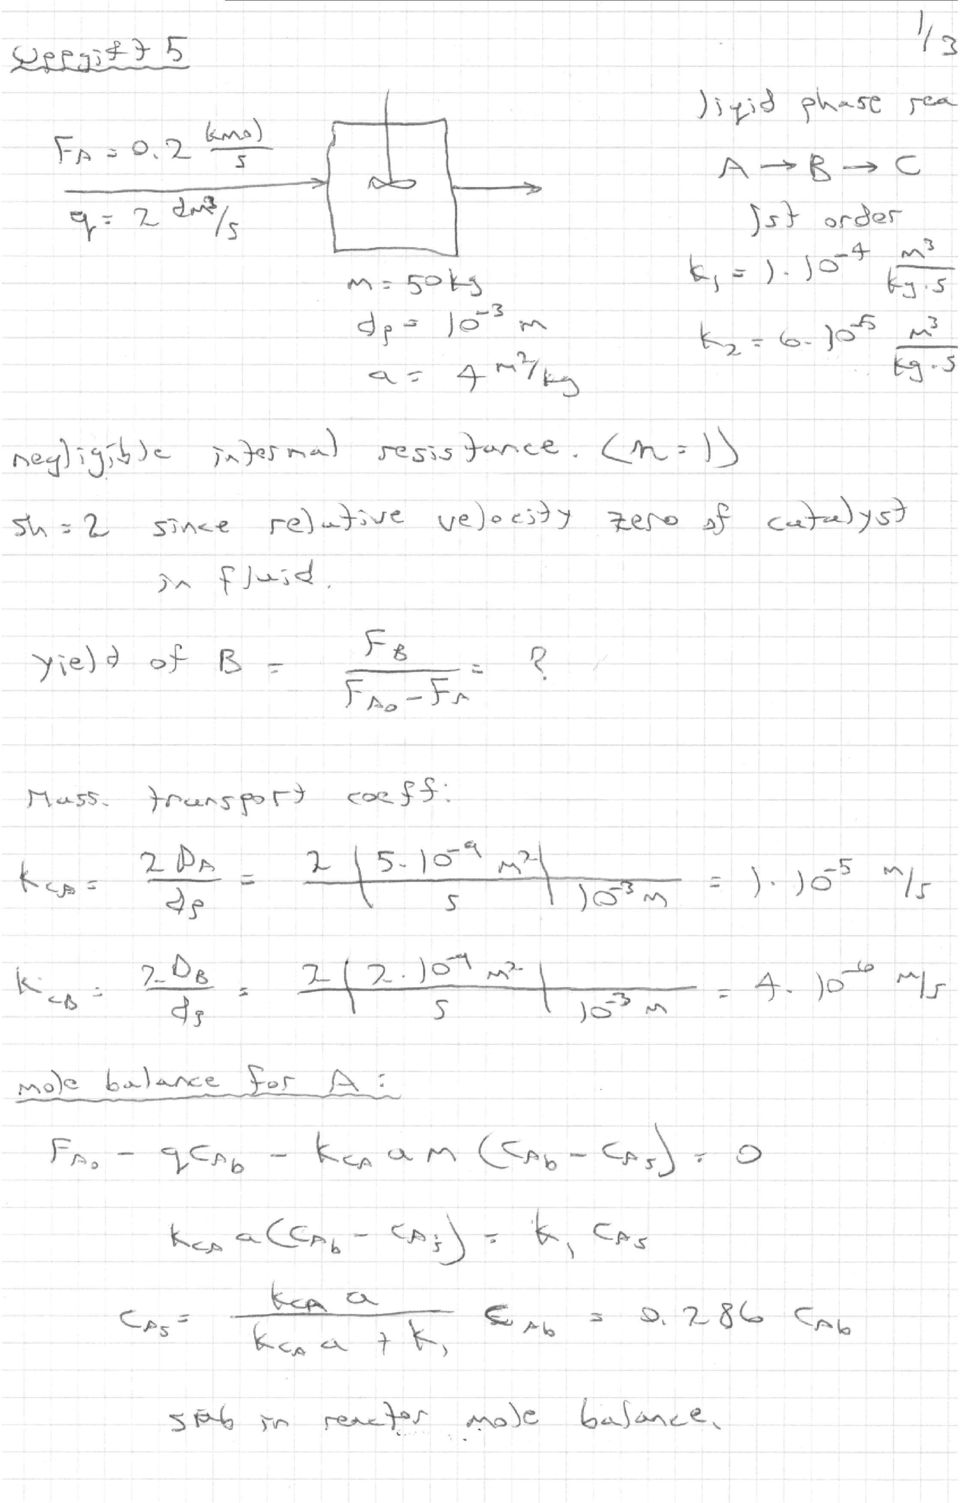 1/3
Uppgift 5
liqid phase rea
F_A = 0.2 kmol/s
A → B → C
q = 2 dm³/s
1st order
k_1 = 1·10^-4 m³/kg·s
m = 50 kg
d_p = 10^-3 m
k_2 = 6·10^-5 m³/kg·s
a = 4 m²/kg
negligible internal resistance. (n = 1)
Sh = 2 since relative velocity zero of catalyst
in fluid.
yield of B = F_B / (F_A0 - F_A) = ?
Mass. transport coeff:
k_cA = 2 D_A / d_p = 2 | 5·10^-9 m² | / s | 10^-3 m = 1·10^-5 m/s
k_cB = 2 D_B / d_p = 2 | 2·10^-9 m² | / s | 10^-3 m = 4·10^-6 m/s
mole balance for A:
F_A0 - q c_Ab - k_cA a m (c_Ab - c_As) = 0
k_cA a (c_Ab - c_As) = k_1 c_As
c_As = k_cA a / (k_cA a + k_1) c_Ab = 0.286 c_Ab
sub in reactor mole balance.